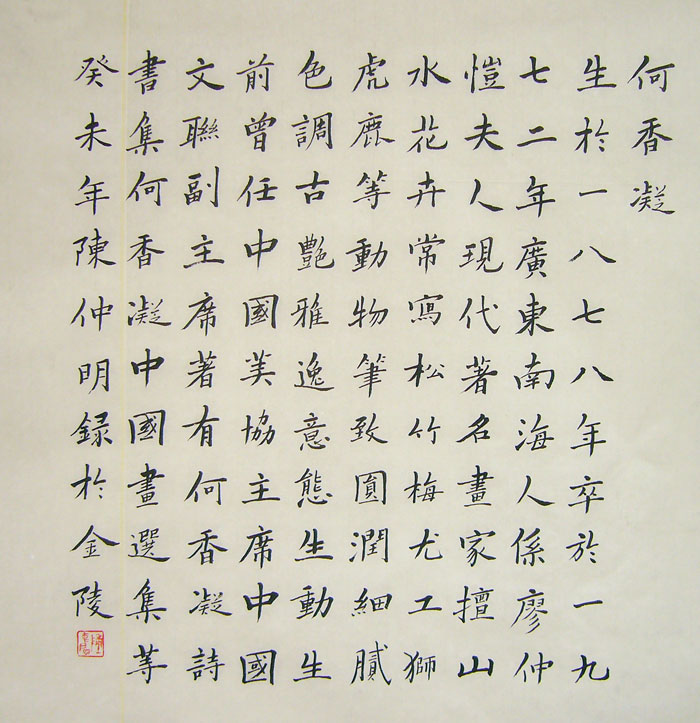 何香凝
生於一八七八年卒於一九
七二年廣東南海人係廖仲
愷夫人現代著名畫家擅山
水花卉常寫松竹梅尤工獅
虎鹿等動物筆致圓潤細膩
色調古艷雅逸意態生動生
前曾任中國美協主席中國
文聯副主席著有何香凝詩
書集何香凝中國畫選集等
癸未年陳仲明録於金陵